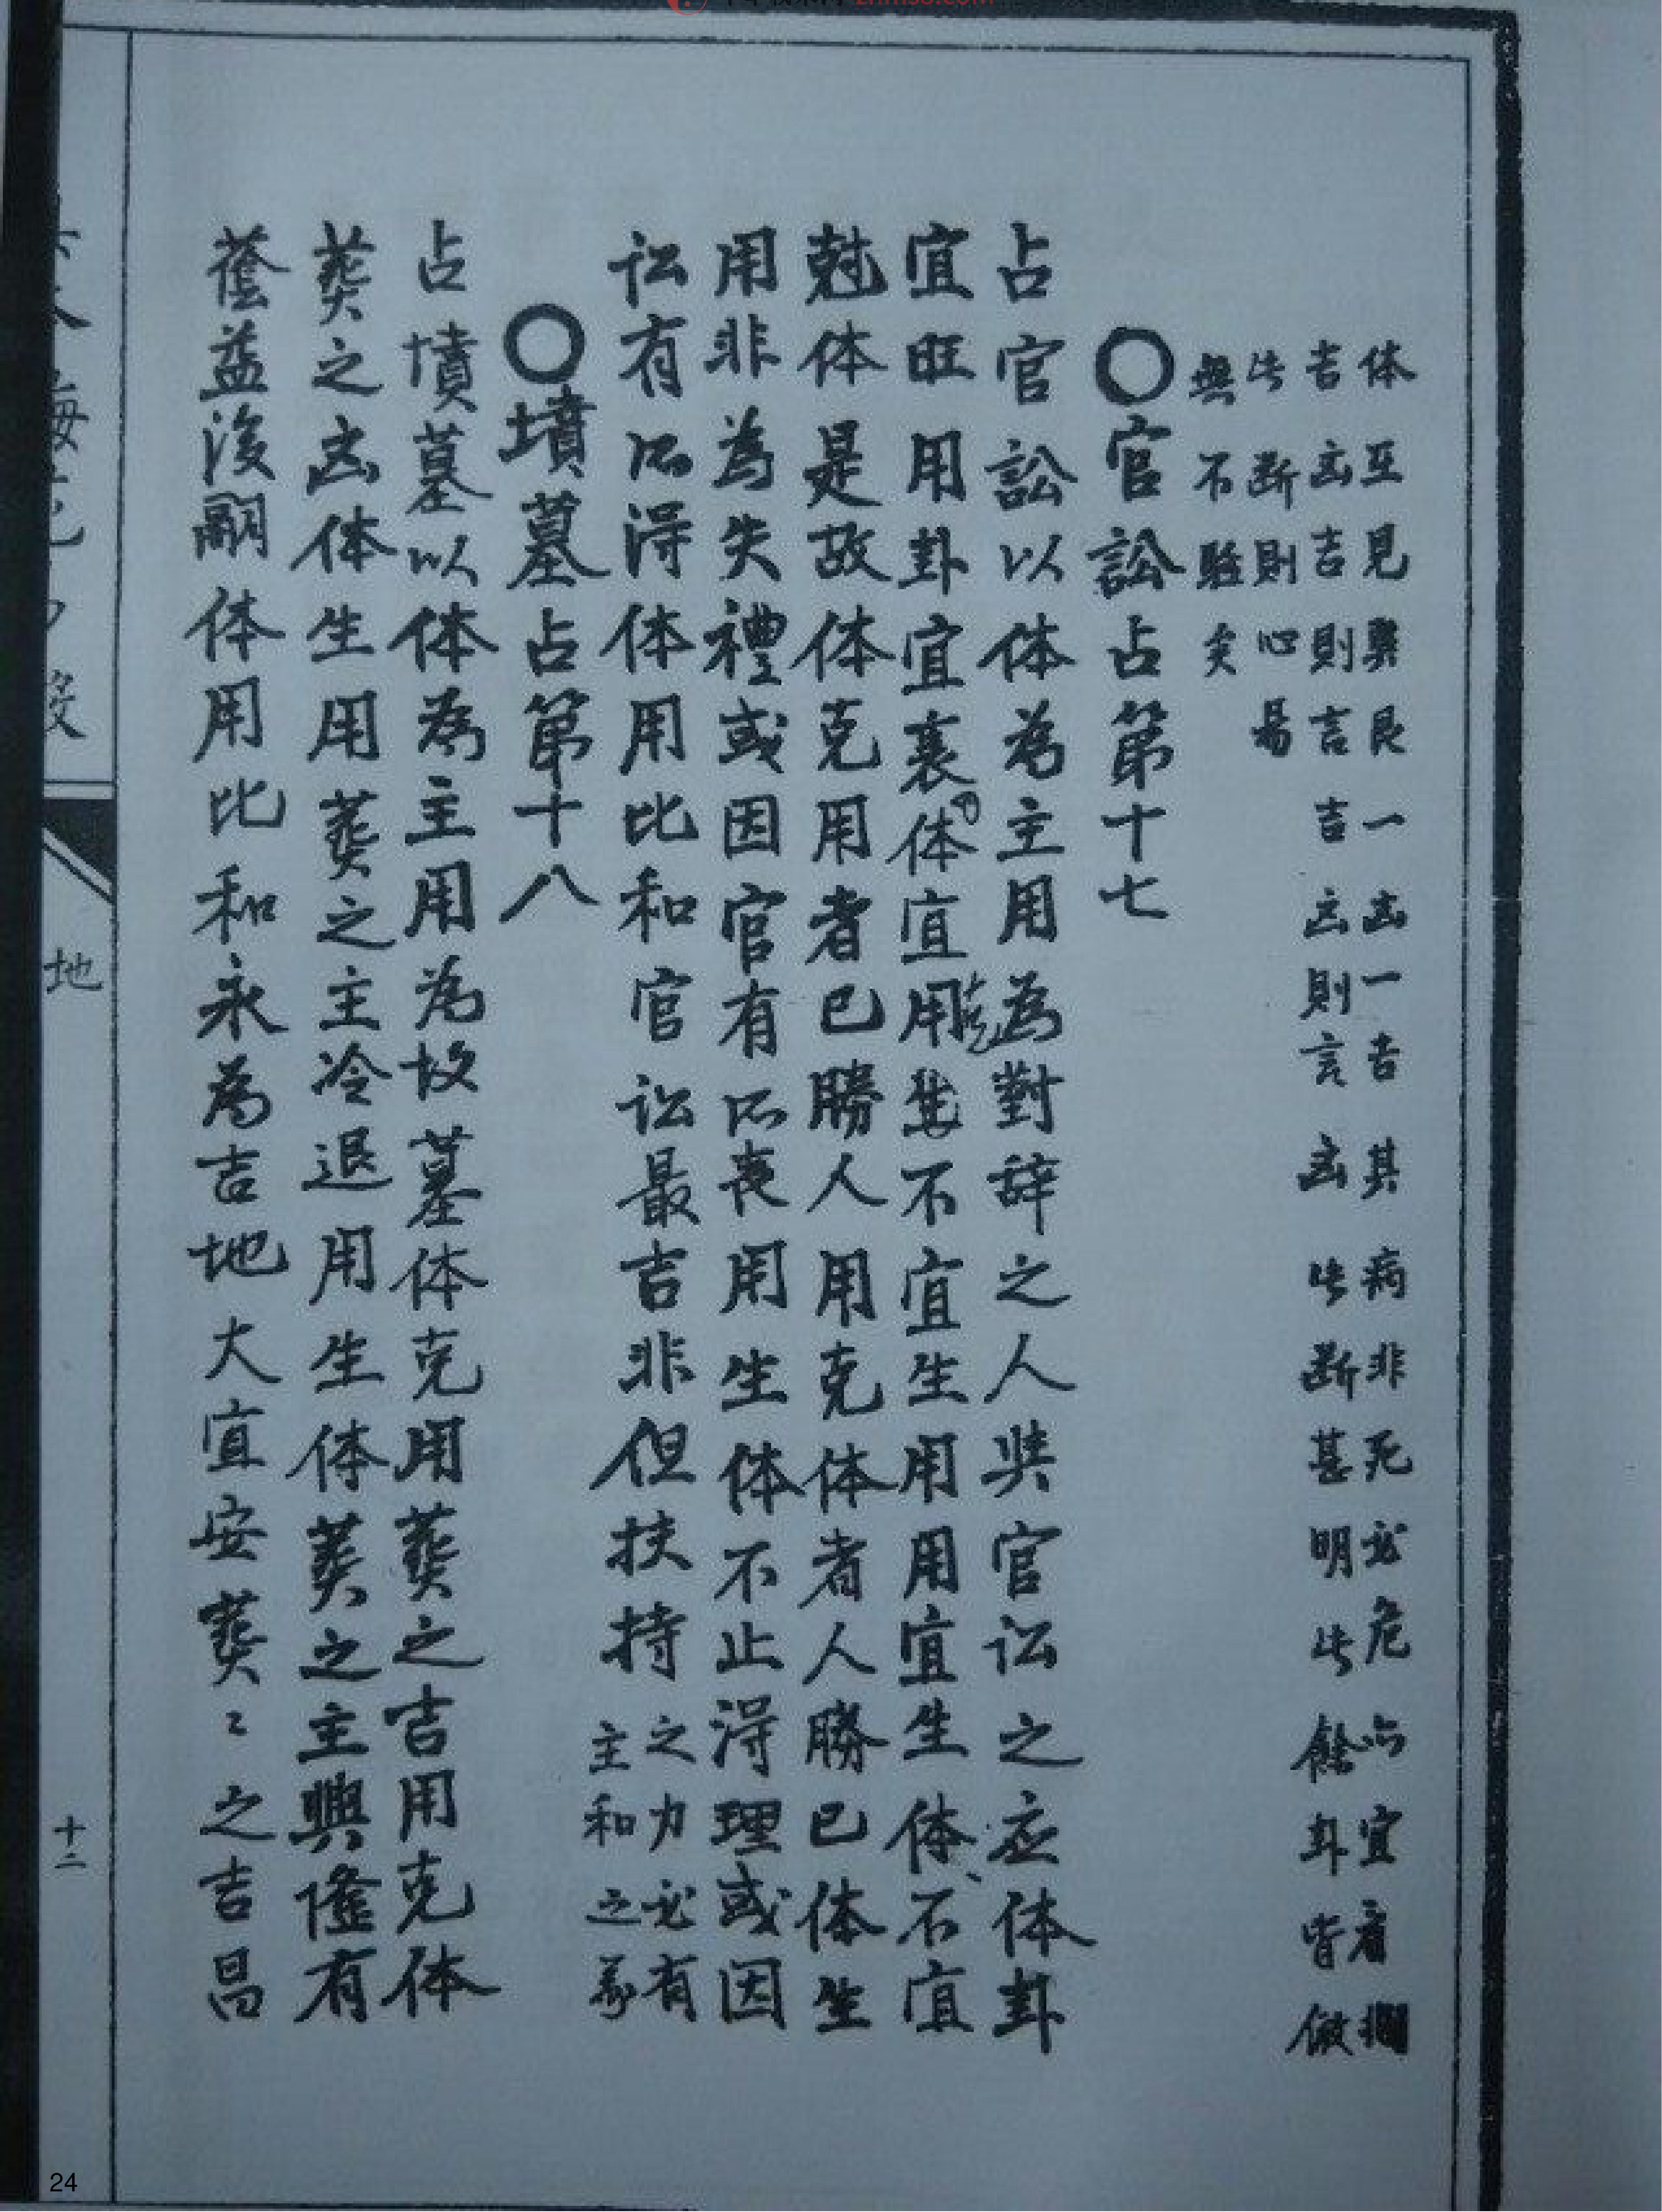 体互見巽艮一凶一吉其病非死必危亦宜看
吉凶吉則吉吉凶則言凶此断甚明此餘卦皆倣
此断則心易
無不驗矣
○官訟占第十七
占官訟以体為主用為對辞之人與官讼之应体卦
宜旺用卦宜衰体宜用生不宜生用用宜生体不宜
尅体是故体克用者已勝人用克体者人勝已体生
用非為失禮或因官有所喪用生体不止得理或因
讼有所得体用比和官讼最吉非但扶持之力必有主和之義
○墳墓占第十八
占墳墓以体為主用為坟墓体克用葬之吉用克体
葬之凶体生用葬之主冷退用生体葬之主興隆有
蔭益後嗣体用比和永為吉地大宜安葬〻之吉昌
地
十二
24